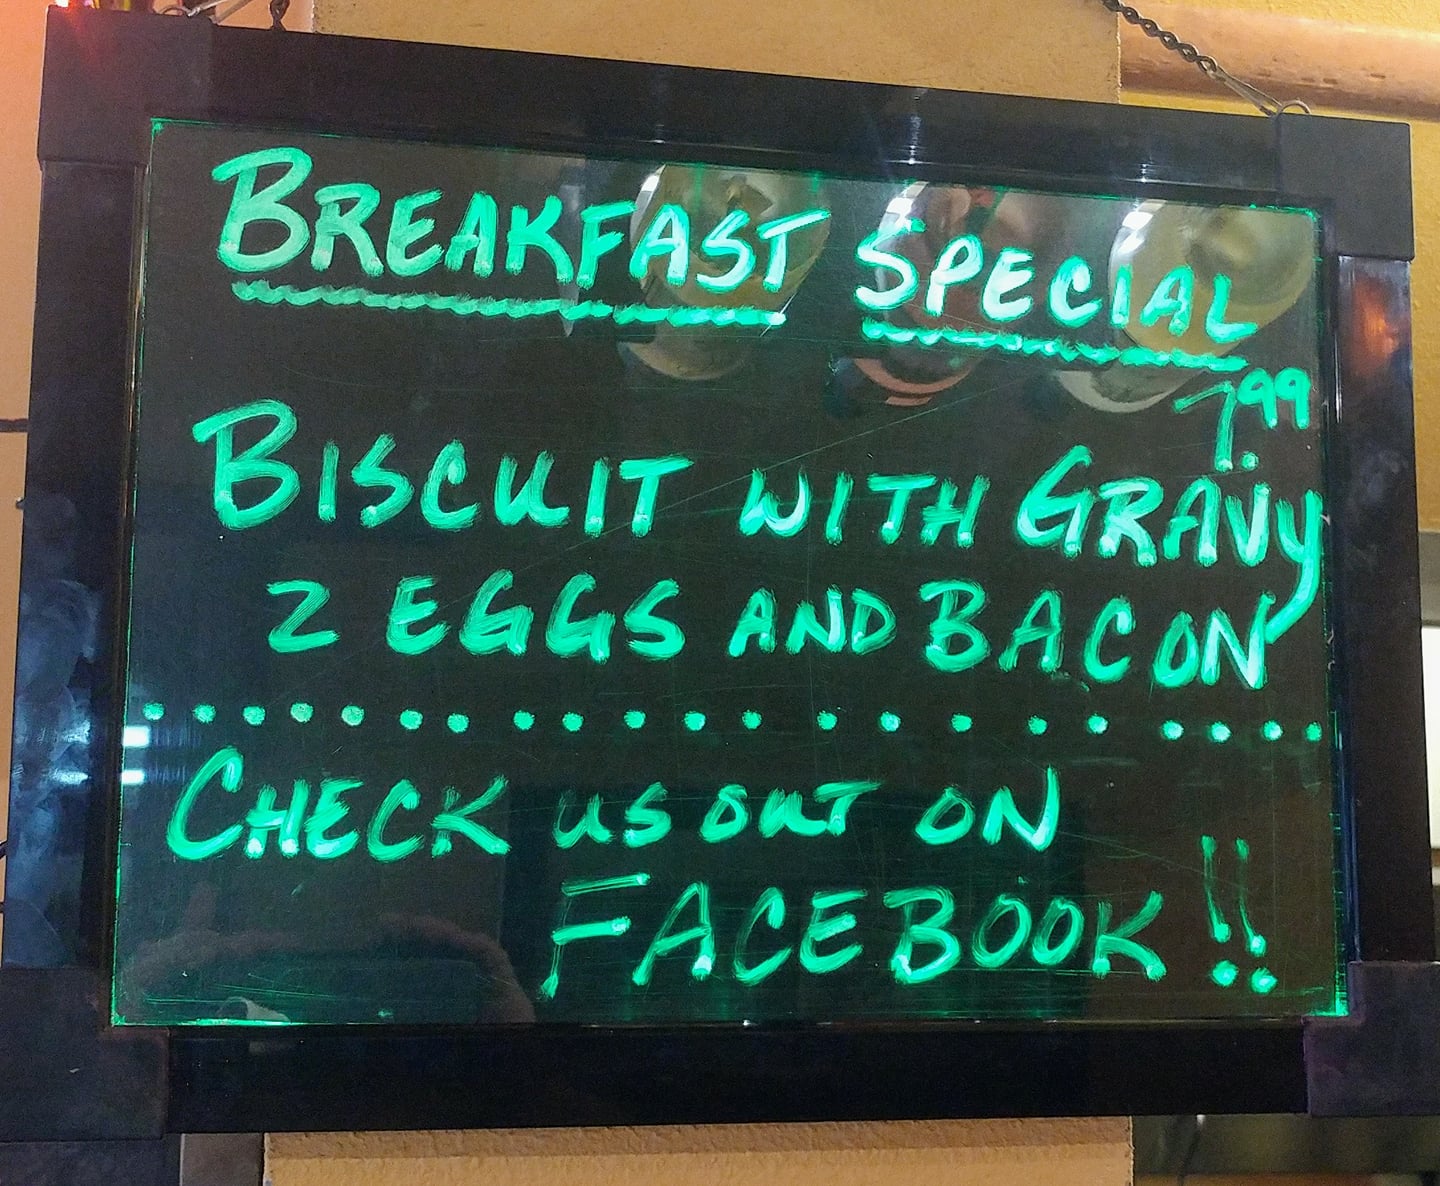 BREAKFAST SPECIAL
7.99
BISCUIT WITH GRAVY
2 EGGS AND BACON
CHECK US OUT ON
FACEBOOK !!